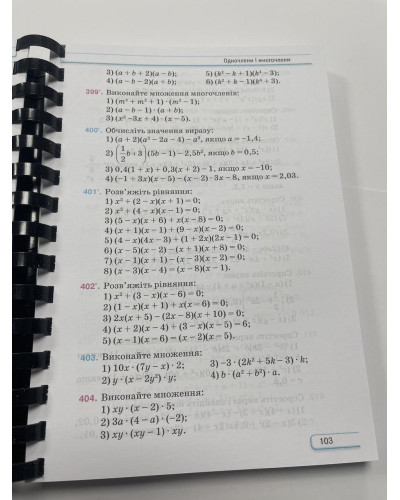 Одночлени і многочлени
3) (a + b + 2)(a − b); 5) (k² − k + 1)(k⁴ − 3);
4) (a − b − 2)(a + b); 6) (k² + k − 1)(k⁴ + 3).
399°. Виконайте множення многочленів:
1) (m⁴ + m² + 1) · (m² − 1);
2) (a − b − 1) · (a + b);
3) (x² − 3x + 4) · (x − 5).
400°. Обчисліть значення виразу:
1) (a + 2)(a² − 2a − 4) − a³, якщо a = −1,4;
2) (1/2 b + 3)(5b − 1) − 2,5b², якщо b = 0,5;
3) 0,4(1 + x) + 0,3(x + 2) − 1, якщо x = −10;
4) (−1 + 3x)(x − 5) − (x − 2) · 3x − 8, якщо x = 2,03.
401°. Розв’яжіть рівняння:
1) x² + (2 − x)(x + 1) = 0;
2) x² + (4 − x)(x − 1) = 0;
3) (5 − x)(x + 6) + x(x − 8) = 0;
4) (x + 1)(x − 1) + (9 − x)(x − 2) = 0;
5) (4 − x)(4x − 3) + (1 + 2x)(2x − 1) = 0;
6) (x − 5)(x − 2) − (x + 1)(x + 8) = 0;
7) (x − 1)(x + 1) − (x − 3)(x − 2) = 0;
8) (x − 3)(x − 4) = (x − 8)(x − 1).
402°. Розв’яжіть рівняння:
1) x² + (3 − x)(x − 6) = 0;
2) (1 − x)(x + 1) + x(x − 6) = 0;
3) 2x(x + 5) − (2x − 8)(x + 10) = 0;
4) (x + 2)(x − 4) + (3 − x)(x − 5) = 6;
5) (x − 1)(x − 6) = (x − 2)(x − 5).
403. Виконайте множення:
1) 10x · (7y − x) · 2; 3) −3 · (2k² + 5k − 3) · k;
2) y · (x − 2y²) · y; 4) b · (a² + b²) · a.
404. Виконайте множення:
1) xy · (x − 2) · 5;
2) 3a · (4 − a) · (−2);
3) xy · (xy − 1) · xy.
103